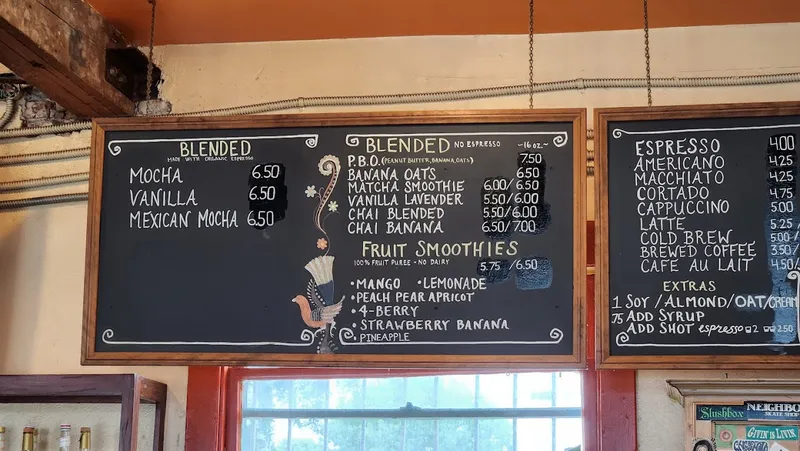 BLENDED
MADE WITH ORGANIC ESPRESSO
MOCHA 6.50
VANILLA 6.50
MEXICAN MOCHA 6.50
BLENDED NO ESPRESSO -16 oz-
P.B.O. (PEANUT BUTTER, BANANA, OATS) 7.50
BANANA OATS 6.50
MATCHA SMOOTHIE 6.00/6.50
VANILLA LAVENDER 5.50/6.00
CHAI BLENDED 5.50/6.00
CHAI BANANA 6.50/7.00
FRUIT SMOOTHIES
100% FRUIT PUREE - NO DAIRY 5.75/6.50
• MANGO • LEMONADE
• PEACH PEAR APRICOT
• 4-BERRY
• STRAWBERRY BANANA
• PINEAPPLE
ESPRESSO 4.00
AMERICANO 4.25
MACCHIATO 4.25
CORTADO 4.75
CAPPUCCINO 5.00
LATTE 5.25/
COLD BREW 5.00/
BREWED COFFEE 3.50/
CAFE AU LAIT 4.50/
EXTRAS
1 SOY/ALMOND/OAT/CREAM
.75 ADD SYRUP
ADD SHOT espresso 2 2.50
Slushbox
NEIGHBO
SKATE SHOP
GIVIN IS LIVIN